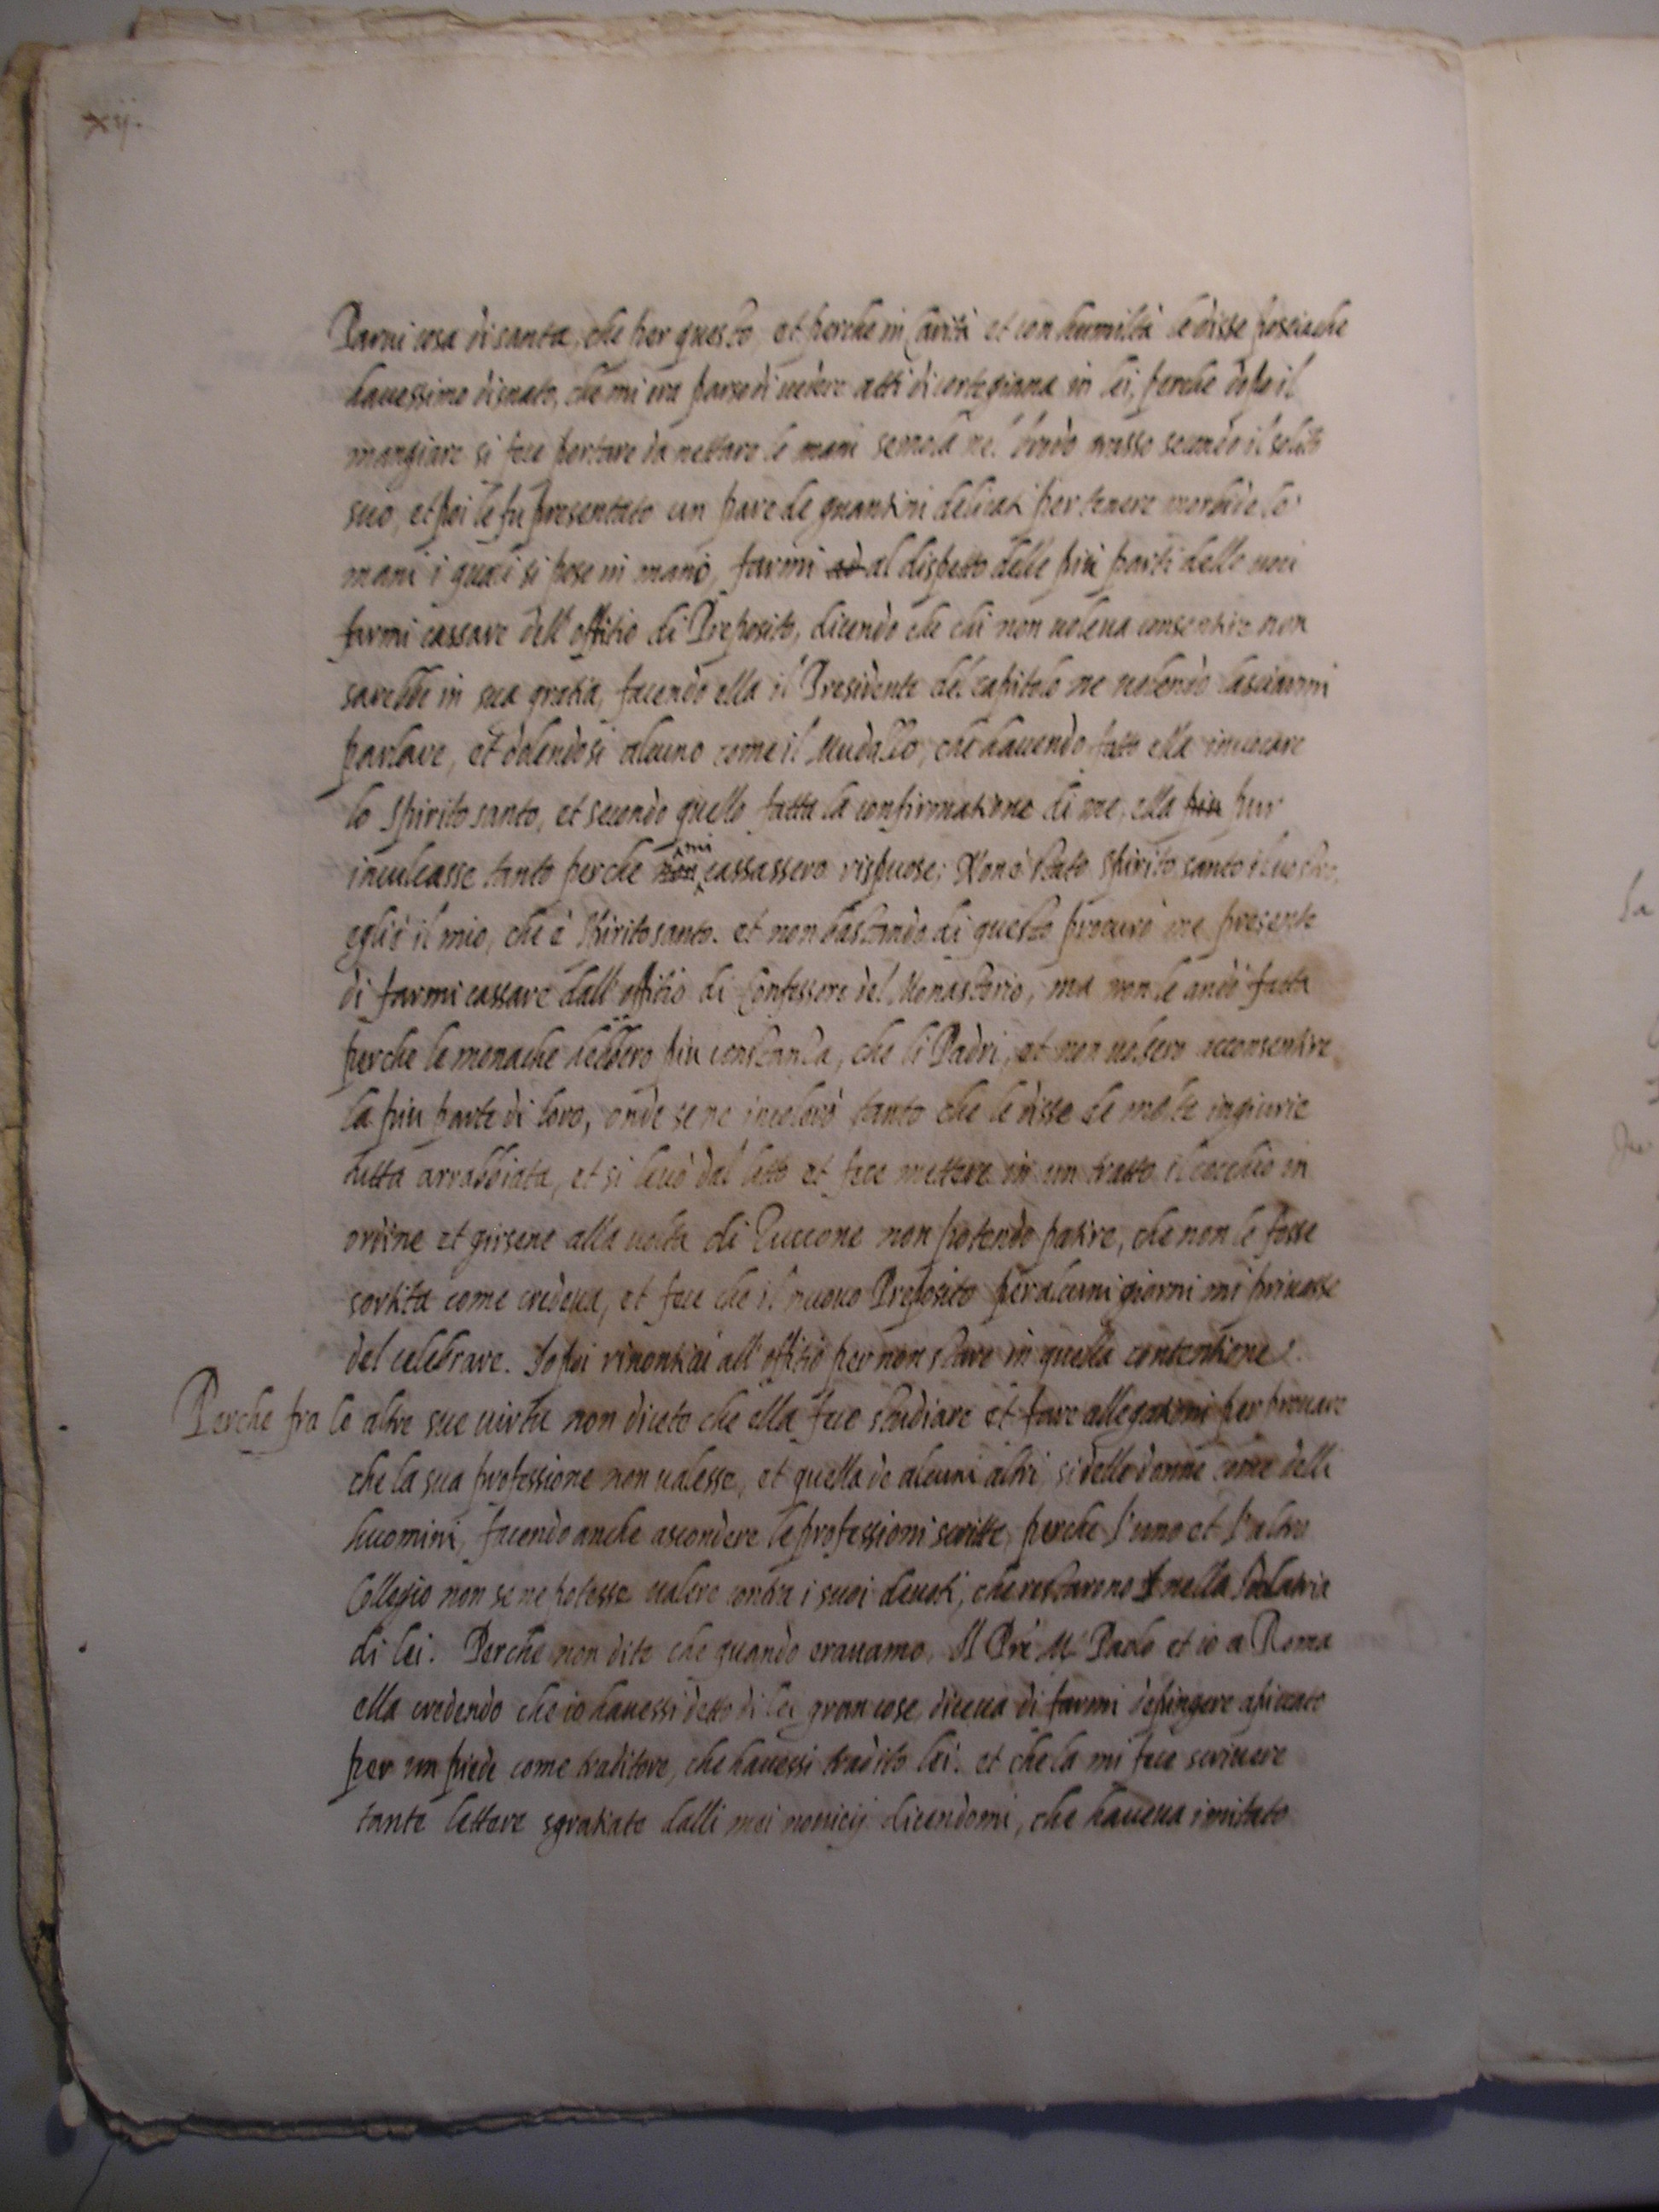 xij.
Parui cosa di santa, che per questo, et perche in carità et con humiltà le disse posciache
hauessimo disnato, che mi era parso di uedere atti di cortegiana in lei, perche dopo il
mangiare si fece portare da nettare le mani semola nel brodo grasso secondo il solito
suo, et poi le fu presentato un paro de guantini delicati per tenere morbide le
mani i quali si pose in mano, farmi ad al dispetto delle più parti delle uoci
farmi cassare dell'offitio di Preposito, dicendo che chi non uoleua consentire non
sarebbe in sua gratia, facendo ella il Presidente del capitolo ne uolendo lasciarmi
parlare, et dolendosi alcuno come il Mudallo, che hauendo fatto ella inuocare
lo Spirito santo, et secondo quello fatta la confirmatione di me, ella piu pur
inculcasse tanto perche non mi cassassero rispuose; Non è stato Spirito santo il uostro,
egli è il mio, che è Spirito santo. et non bastando di questo procurò me presente
di farmi cassare dall'offitio di Confessore del Monasterio, ma non le andò fatta
perche le monache hebbero piu constanza, che li Padri, et non uolsero acconsentire
la piu parte di loro, onde se ne incolerò tanto che le disse de molte ingiurie
tutta arrabbiata, et si leuò dal letto et fece mettere in un tratto il cocchio in
ordine et girsene alla uolta di Zuccone non potendo patire, che non le fosse
sortita come credeua, et fece che il nuouo Preposito per alcuni giorni mi priuasse
del celebrare. Io poi rinontiai all'offitio per non stare in quella contentione.
Perche fra le altre sue uirtu non dicete che ella fece studiare et fare allegationi per prouare
che la sua professione non ualesse, et quella de alcuni altri, si delle donne come delli
huomini, facendo anche ascondere le professioni scritte, perche l'uno et l'altro
Collegio non se ne potesse ualere contra i suoi deuoti, che restarono nella Idolatria
di lei. Perche non dite che quando erauamo, Il Pre M. Paolo et io a Roma
ella credendo che io hauessi detto di lei gran cose, diceua di farmi depingere apiccato
per un piede come traditore, che hauessi tradito lei. et che la mi fece scriuere
tante lettere sgratiate dalli mei nouicij dicendomi, che haueua imitato